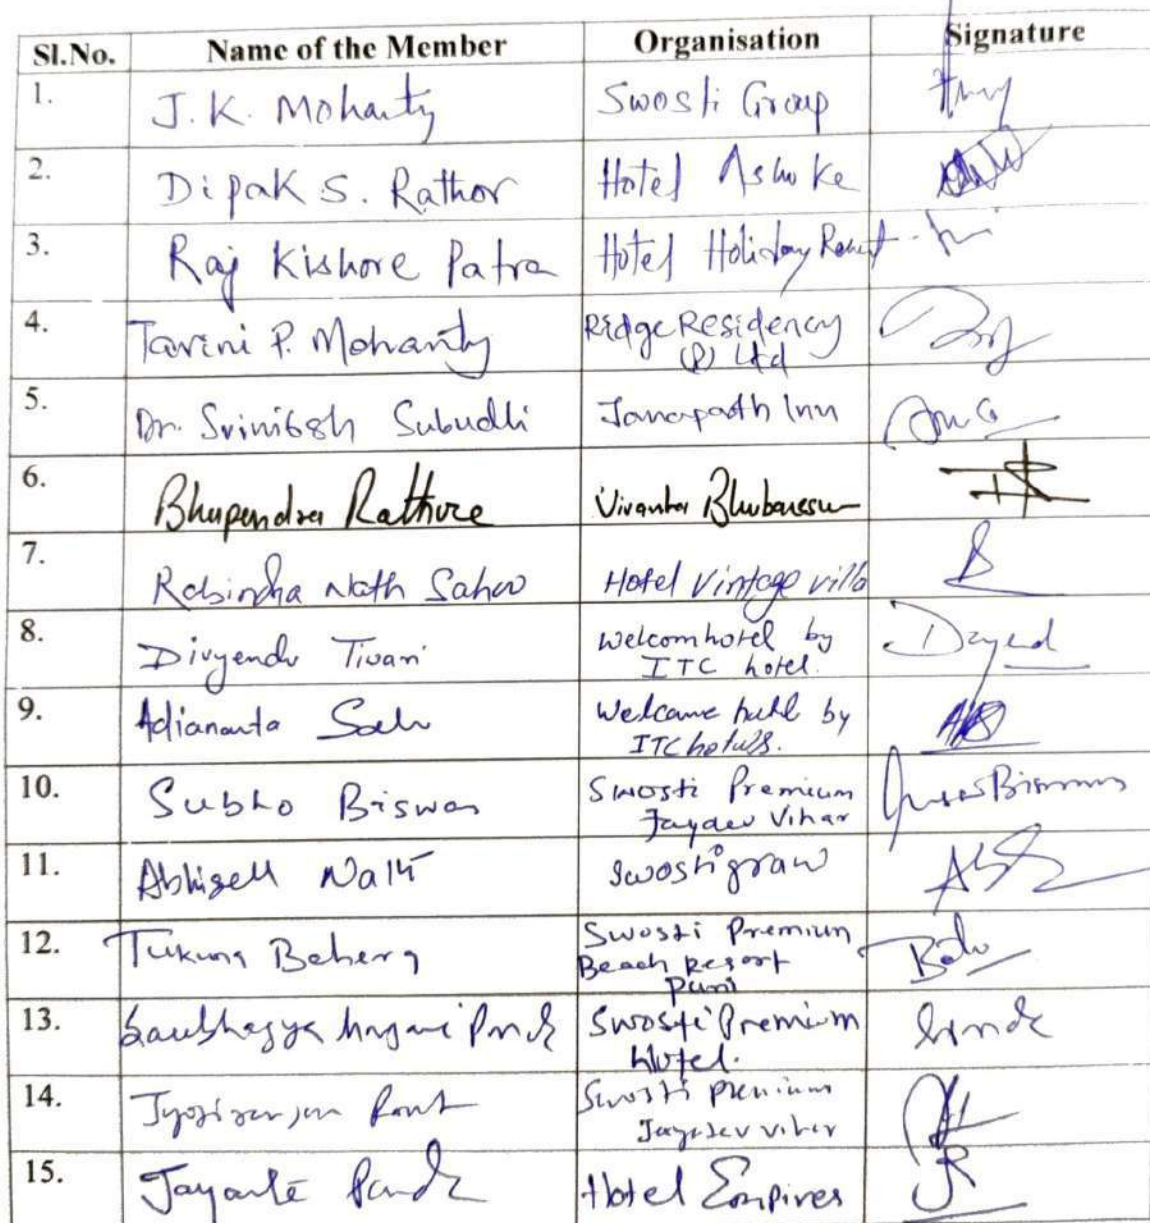 Sl.No. Name of the Member Organisation Signature
1. J.K. Mohanty Swosti Group
2. Dipak S. Rathor Hotel Ashoke
3. Raj Kishore Patra Hotel Holiday Resort
4. Tarini P. Mohanty Ridge Residency
(P) Ltd
5. Dr. Srinibash Subudhi Janapath Inn
6. Bhupendra Rathore Vivanta Bhubaneswar
7. Rabindra Nath Sahoo Hotel Vintage villa
8. Divyendu Tiwari Welcomhotel by
ITC hotel.
9. Adiananta Sahu Welcome hotel by
ITC hotels.
10. Subho Biswas Swosti Premium
Jaydev Vihar
11. Swosti
12. Tukuna Behera Swosti Premium
Beach Resort
Puri
13. Saubhagya Swosti Premium
Hotel.
14. Jyotiranjan Rout Swosti Premium
Jayadev vihar
15. Jayanta Panda Hotel Empires